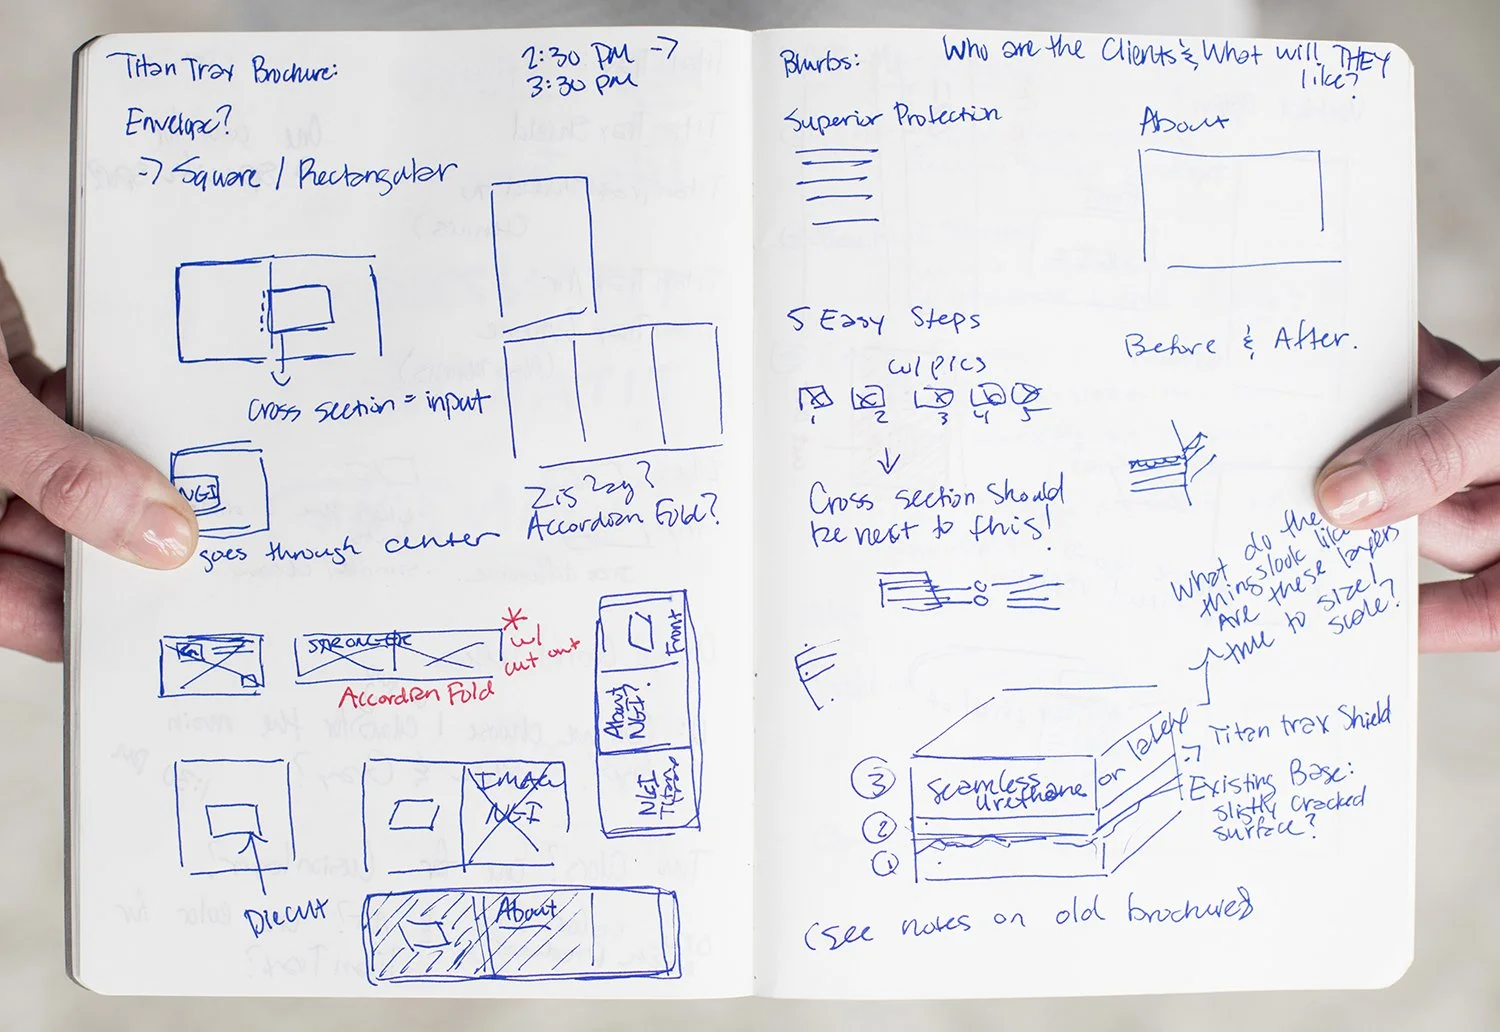 Titan Trax Brochure:
2:30 PM ->
3:30 PM
Envelope?
-> Square / Rectangular
Cross section = input
NGI
goes through center
Zig Zag?
Accordion Fold?
STRONGER
* w/
cut out
Accordion Fold
Front
About
NGI?
NGI
Titan
Diecut
IMAG
NGI
About
Blurbs:
Who are the Clients & What will THEY
like?
Superior Protection
About
5 Easy Steps
w/ pics
1 2 3 4 5
Before & After.
Cross section should
be next to this!
What do the
things look like
Are these layers
true to size /
scale?
3
2
1
Seamless
Urethane
or layer
-> Titan trax Shield
Existing Base:
slistly cracked
surface?
(see notes on old brochure)